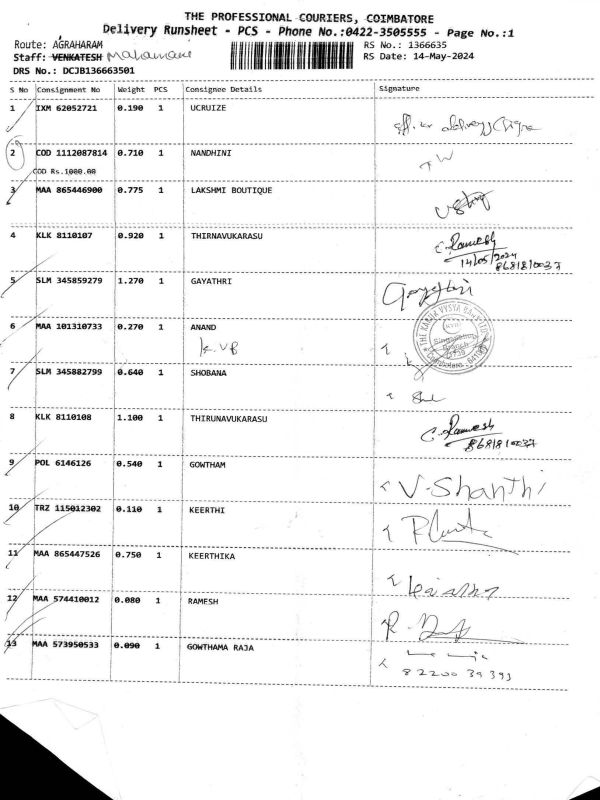 THE PROFESSIONAL COURIERS, COIMBATORE
Delivery Runsheet - PCS - Phone No.:0422-3505555 - Page No.:1
Route: AGRAHARAM
RS No.: 1366635
Staff: VENKATESH
RS Date: 14-May-2024
DRS No.: DCJB136663501
S No Consignment No Weight PCS Consignee Details Signature
1 IXM 62052721 0.190 1 UCRUIZE
2 COD 1112087814 0.710 1 NANDHINI
COD Rs.1000.00
3 MAA 865446900 0.775 1 LAKSHMI BOUTIQUE
4 KLK 8110107 0.920 1 THIRNAVUKARASU
C. Ramesh
14/05/2024
8681810037
5 SLM 345859279 1.270 1 GAYATHRI Gayathri
6 MAA 101310733 0.270 1 ANAND
K.VB
THE KARUR VYSYA BANK LTD
7 SLM 345882799 0.640 1 SHOBANA
8 KLK 8110108 1.100 1 THIRUNAVUKARASU C. Ramesh
8681810037
9 POL 6146126 0.540 1 GOWTHAM V. Shanthi
10 TRZ 115012302 0.110 1 KEERTHI
11 MAA 865447526 0.750 1 KEERTHIKA
12 MAA 574410012 0.080 1 RAMESH
13 MAA 573950533 0.090 1 GOWTHAMA RAJA
82200 39393